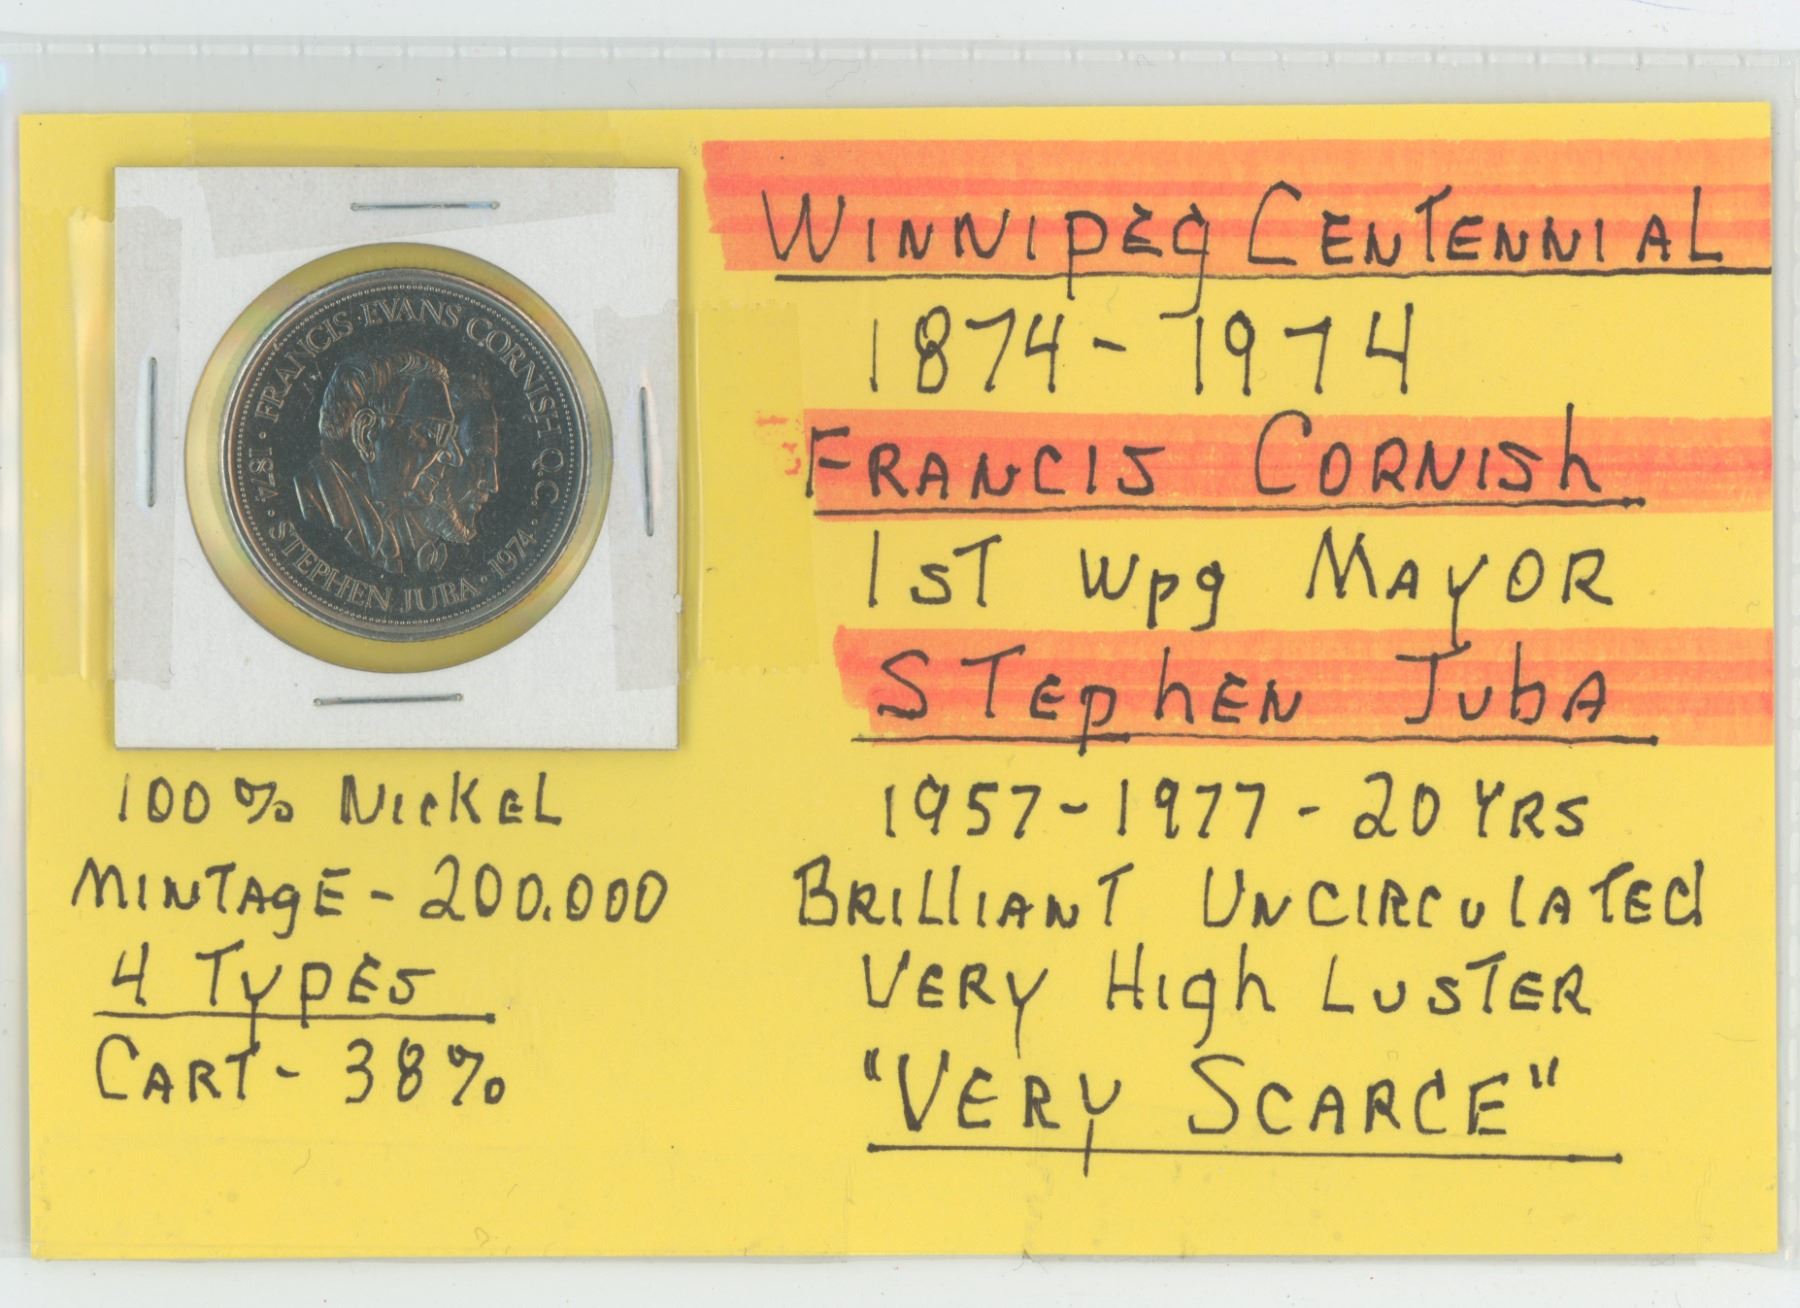 1874 · FRANCIS · EVANS CORNISH Q.C. ·
STEPHEN JUBA · 1974
100% NICKEL
MINTAGE - 200.000
4 TYPES
CART - 38%
WINNIPEG CENTENNIAL
1874 - 1974
FRANCIS CORNISH
1ST Wpg MAYOR
STEPHEN JUBA
1957 - 1977 - 20 YRS
BRILLIANT UNCIRCULATED
VERY HIGH LUSTER
"VERY SCARCE"